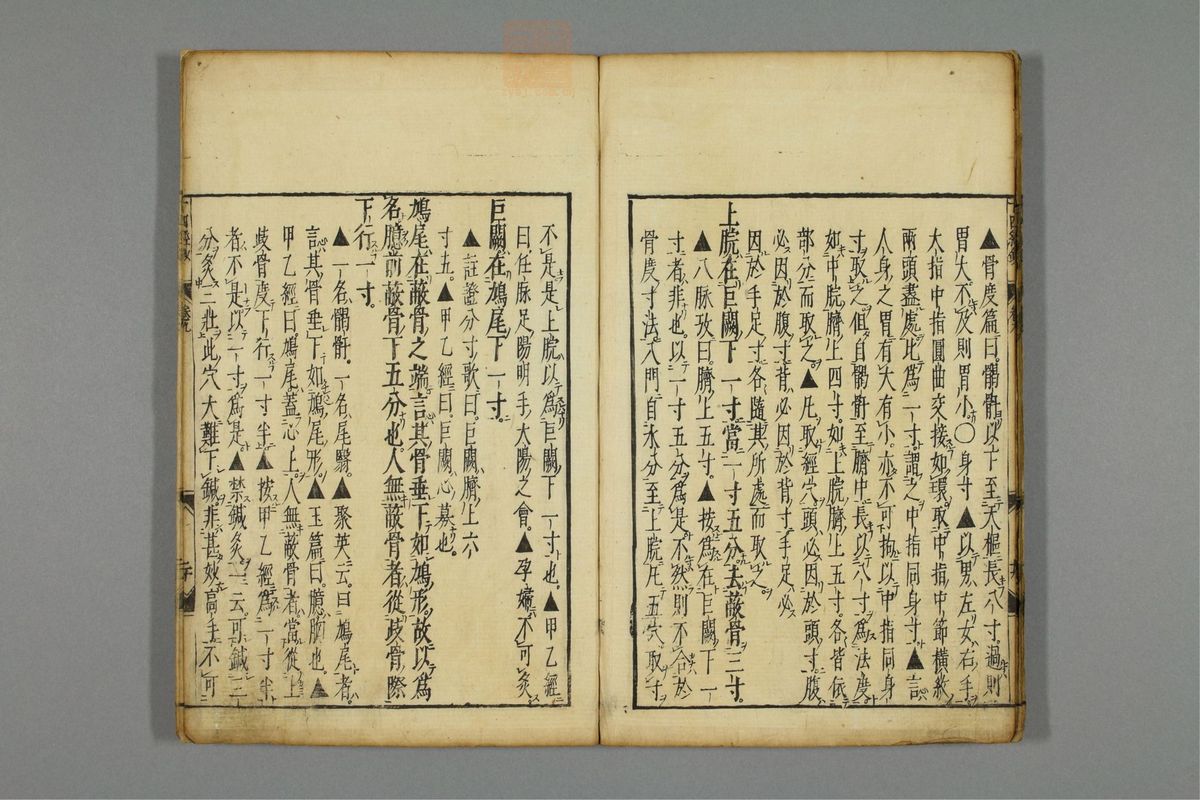 ▲骨度篇曰。髑骬以下至天樞長八寸過則
胃大不及則胃小〇身寸▲以男左女右手
大指中指圓曲交接如環取中指中節橫紋
兩頭盡處比為一寸謂之中指同身寸▲言
人身之胃有大有小亦不可拘以中指同身
寸取之但自髑骬至臍中長以八寸為法度
如中脘臍上四寸如上脘臍上五寸。各皆依
部分而取之▲凡取經穴頭必因於頭寸腹
必因於腹寸背必因於背寸手足必
因於手足寸各隨其所處而取之
上脘在巨闕下一寸當一寸五分去蔽骨三寸。
▲八脉攷曰。臍上五寸。▲按為在巨闕下一
寸者非也。以一寸五分為是不然則不合於
骨度寸法。入門自水分至上脘凡五穴取寸
不是是上脘以為巨闕下一寸也。▲甲乙經
曰任脉足陽明手太陽之會。▲孕婦不可灸
巨闕在鳩尾下一寸。
▲註證分寸歌曰。巨闕臍上六
寸五。▲甲乙經曰。巨闕心募也。
鳩尾在蔽骨之端言其骨垂下如鳩形。故以為
名臆前蔽骨下五分也。人無蔽骨者從歧骨際
下行一寸。
▲一名髑骬。一名尾翳。▲聚英云。曰鳩尾者。
言其骨垂下如鳩尾形。▲玉篇曰。臆胸也。▲
甲乙經曰。鳩尾蓋心上。人無蔽骨者當從上
歧骨度下行一寸半▲按甲乙經為一寸半
者不是以一寸為是▲禁鍼灸一云可鍼三
分灸三壯此穴大難下鍼非甚妙高手不可